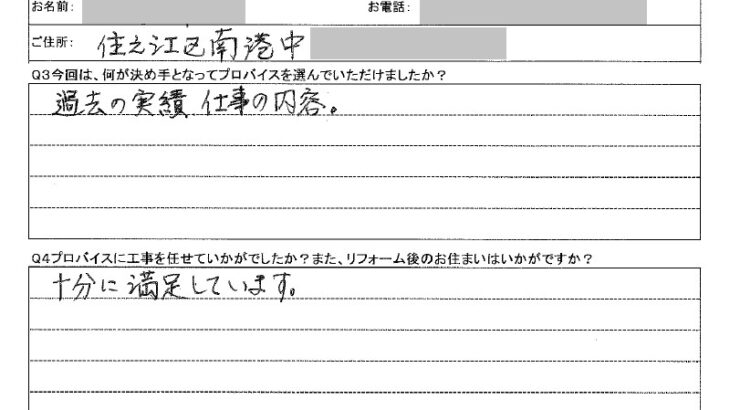 お名前: お電話:
ご住所: 住之江区南港中
Q3今回は、何が決め手となってプロバイスを選んでいただけましたか?
過去の実績 仕事の内容。
Q4プロバイスに工事を任せていかがでしたか?また、リフォーム後のお住まいはいかがですか?
十分に満足しています。